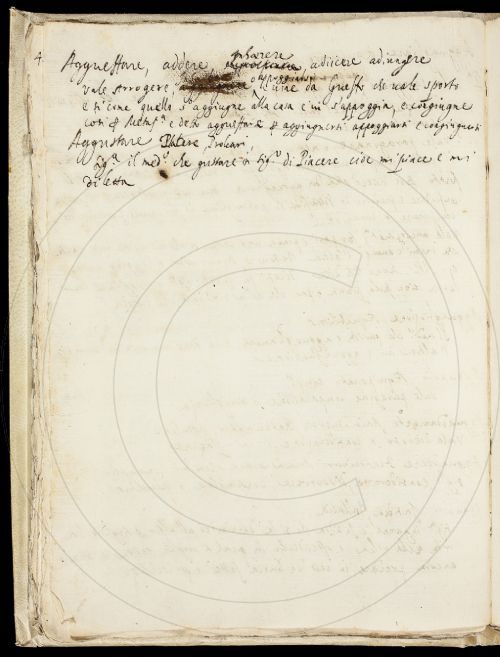 4
inhærere
Aggueffare, addere, adiicere adiungere
appoggiarsi
vale Arrogere, e viene da Gueffo che vale sporto
e si come quello s'aggiugne alla casa e vi s'appoggia, e congiugne
così p Metafª e detto aggueffare p aggiugnersi appoggiarsi e congiugnersi
Aggustare Placere,
figª il medº che gustare in figº di Piacere cioè mi piace e mi
diletta